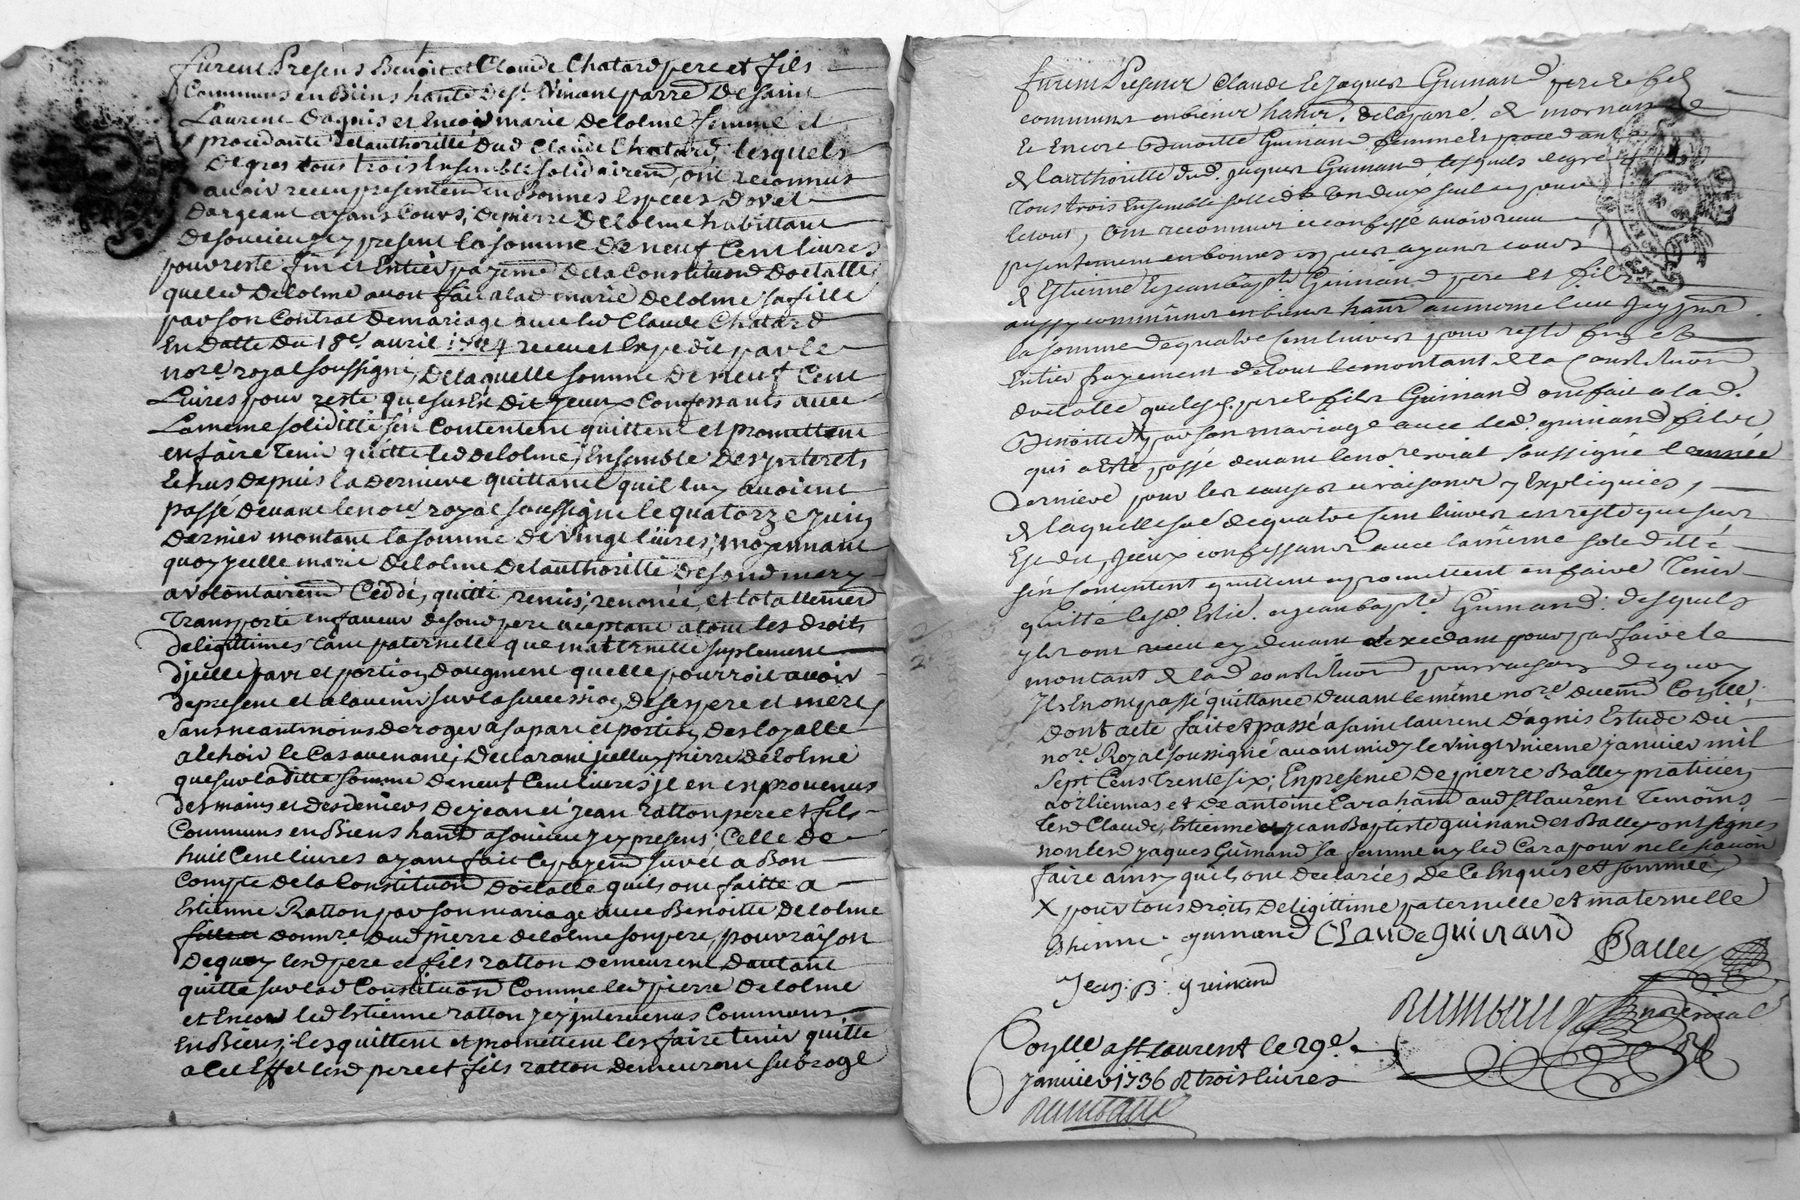 furent Presens Benoit et Claude Chatard pere et fils
Communs en Biens hants de st. Vincent parre de saint
Laurent Dagnis et Encor marie delolme femme et
procedante de lauthoritté dud Claude Chatard, lesquels
de gres tous trois Ensemble solidairemt, ont reconnus
avoir receu presentemt en Bonnes Especes Dor et
Dargeant ayans Cours, de pierre Delolme habittant
de soucieu jcy present la somme de neuf Cent livres
pour reste fin et Entier payemt de la Constituon Doctalle
que led Delolme avoit fait a lad marie Delolme sa fille
par son Contrat de mariage avec led Claude Chatard
En datte du 18e. avril receu et Expedié par le
nore. royal soussigné, de laquelle somme de neuf Cent
Livres pour reste que sus Est dit jceux Confessants avec
La meme soliditté s'en Contentent quittent et promettent
en faire tenir quitte led delolme, Ensemble des jnterets
Echus depuis la derniere quittance quil luy avoient
passé devant le nore. royal soussigné le quatorze juin
dernier montant la somme de vingt livres; moyennant
quoy jcelle marie Delolme de lauthoritté de sond mary
a volontairemt Ceddé, quitté, remis, renoncé, et totallement
transporté en faveur de son pere aceptant a tous les droits
de legittimes tant paternelle que matternelle suplement
djcelle part et portion dougment quelle pourroit avoir
de present et a lavenir sur la succession de ses pere et mere,
sans neantmoins deroger a sa part et portion des loyalle
a lehoir le Cas avenant; Declarant jcelluy pierre delolme
que sur laditte somme de neuf Cent livres jl en en provenus
des mains et des deniers de jean et jean ratton pere et fils
Communs en Biens hants a soucieu jcy presens; Celle de
huit Cent livres ayant fait Ce payemt sur et a Bon
Compte de la Constituon Doctalle quils ont faitte a
Estienne Ratton par son mariage avec Benoitte delolme
dud pierre delolme son pere, pour raison
de quoy lesd pere et fils ratton demeurent dautant
quitte sur lad Constituon Comme led pierre Delolme
et Encor led Estienne ratton jcy jntervenus Communs
en Biens; les quittent et promettent les faire tenir quitte
a Cet Effet lesd pere et fils ratton demeurent subrogé
furent Presens Claude et Jaques Guinand pere et fils
communs en biens hants. de la parre. de mornant
et Encore Benoitte Guinand femme et procedant
de lauthoritté dud. jaques Guinand lesquels de gré
tous trois Ensemble solidt. un deux seul et pour
letout, ont reconnus et confessé avoir receu
presentement en bonnes especes ayants cours
d'Estienne et jean baptte Guinand pere et fils
aussy communs en biens hants au meme lieu jcy pns
la somme de quatre Cent livres pour reste fin et
Entier payement de tout le montant de la Constitution
doctalle que lesd. pere et fils Guinand ont fait a lad.
Benoitte par son mariage avec led. guinand fils
qui a Esté passé devant le nore royal soussigné lannée
derniere pour les causes et raisons y Expliquées,
de laquelle some de quatre Cent livres en reste que sus
Est dit, jceux confessants avec la même soliditté
s'en Contentent quittent et promettent en faire tenir
quitte lesd. Estie. et jean bapte Guinand: desquels
ils ont receu cy devant lexcedant pour parfaire le
montant de lad constituon pour raison de quoy
jls En ont passé quittance devant le même nore duemt Conlle.
dont acte fait et passé a saint laurent dagnis Estude du
nore. Royal soussigné avant midy le vingt unieme janvier mil
sept Cens Trente six; En presence de pierre Balley praticien
a orlienas et de antoine Caraham aud st laurent temoins
lesd Claude, Estienne et jean Baptiste guinand et Balley ont signés
non lesd jaques Guinand sa femme ny led Cara pour ne le savoir
faire ainsy quils ont declarés de Ce Enquis et sommés
X pour tous droits de legittime paternelle et maternelle
Etienne guinand Claude guinand
Balley
Jean: B: guinand
nore royal
Conlle a st laurent le 29e.
janvier 1736 R trois livres